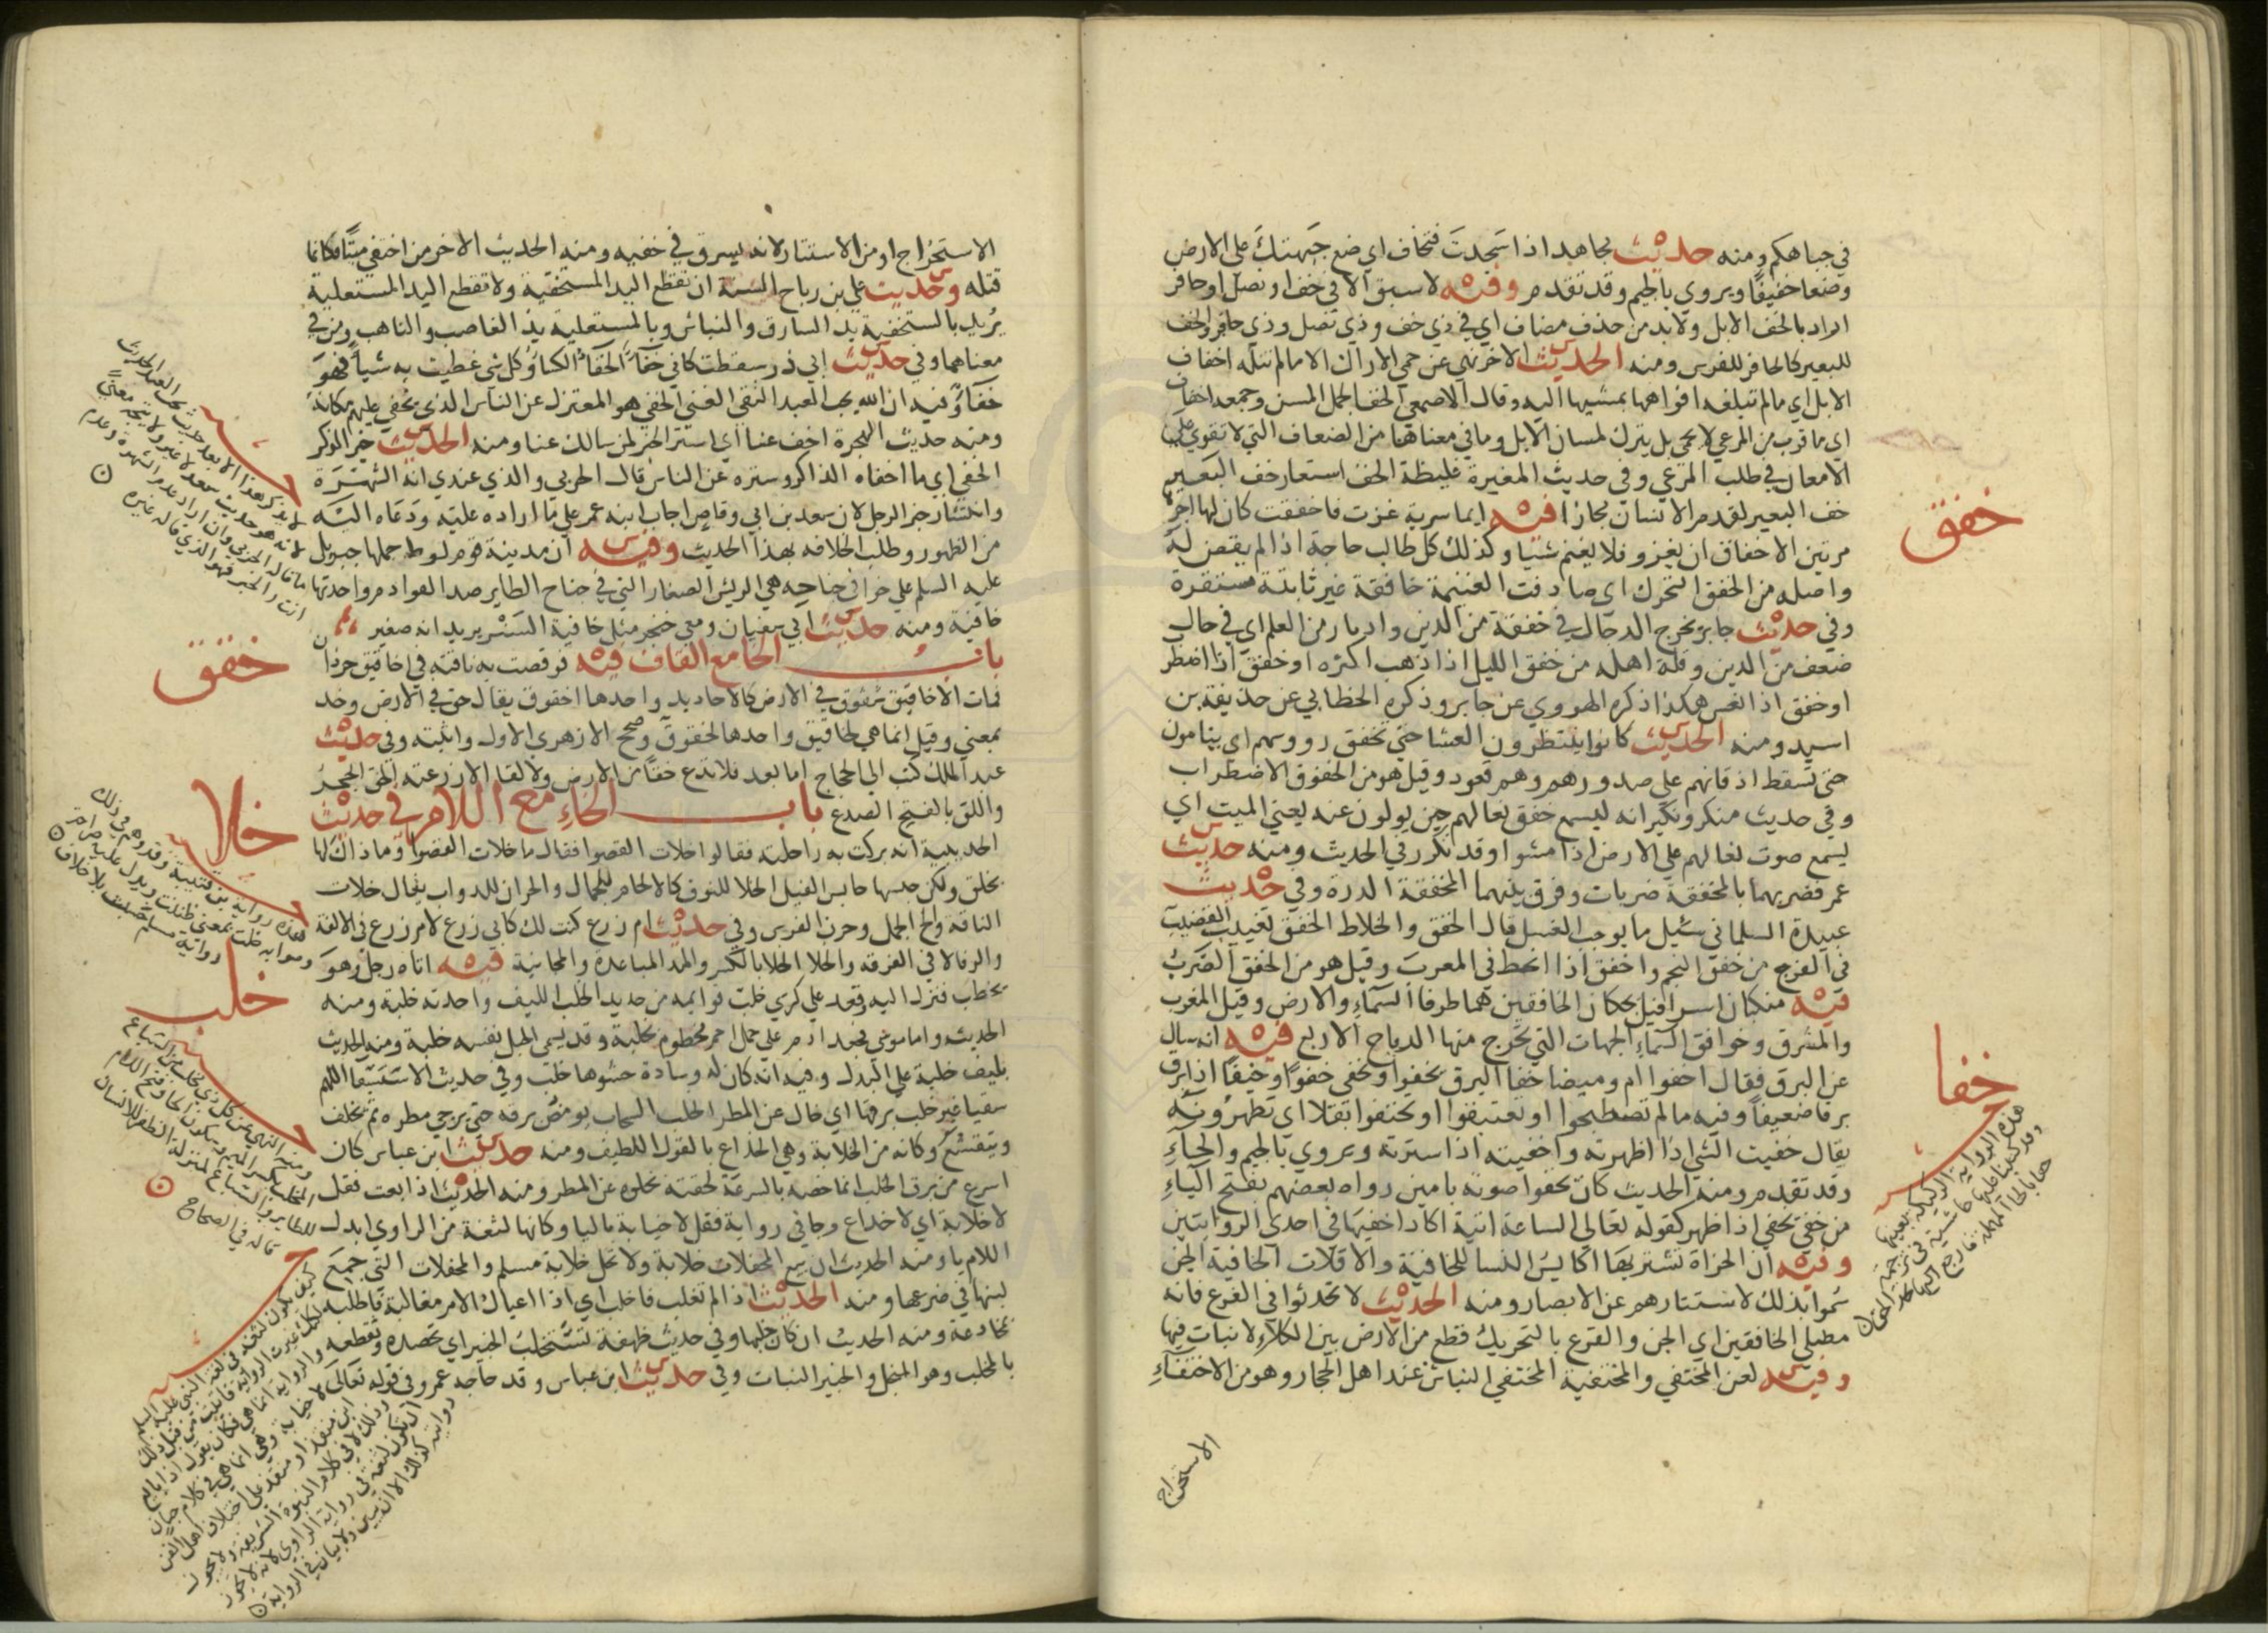 في جباهكم ومنه حديث مجاهد اذا سجدت فتخاف اي ضع جبهتك على الارض
وضعا خفيفا ويروي بالجيم وقد تقدم وفيه لا سبق الا في خف او نصل او حافر
اراد بالخف الابل ولا بد من حذف مضاف اي في ذي خف وذي نصل وذي حافر والخف
للبعير كالحافر للفرس ومنه الحديث الاخر نهي عن حمي الاراك الا ما لم تنله اخفاف
الابل اي ما لم تبلغه افواهها بمشيها اليه وقال الاصمعي الخف الجمل المسن وجمعه اخفاف
اي ما قرب من المرعي لا يحمي بل يترك لمسان الابل وما في معناها من الضعاف التي لا تقوي على
الامعان في طلب المرعي وفي حديث المغيرة غليظة الخف استعار خف البعير
خفق
خف البعير لقدم الانسان مجازا فيه ايما سرية غزت فاخفقت كان لها اجرها
مرتين الاخفاق ان يغزو فلا يغنم شيا وكذلك كل طالب حاجة اذا لم يقض له
واصله من الخفق التحرك اي صادفت الغنيمة خافقة غير ثابتة مستقرة
وفي حديث جابر يخرج الدجال في خفقة من الدين وادبار من العلم اي في حال
ضعف من الدين وقلة اهله من خفق الليل اذا ذهب اكثره او خفق اذا اضطر
او خفق اذا نعس هكذا ذكره الهروي عن جابر وذكره الخطابي عن حذيفة بن
اسيد ومنه الحديث كانوا ينتظرون العشا حتى تخفق رووسهم اي ينامون
حتى تسقط اذقانهم على صدورهم وهم قعود وقيل هو من الخفوق الاضطراب
وفي حديث منكر ونكير انه ليسمع خفق نعالهم حين يولون عنه يعني الميت اي
يسمع صوت نعالهم على الارض اذا مشوا وقد تكرر في الحديث ومنه حديث
عمر فضربهما بالمخفقة ضربات وفرق بينهما المخفقة الدرة وفي حديث
عبيدة السلماني سئيل ما يوجب الغسل قال الخفق والخلاط الخفق تغييب القضيب
في الفرج من خفق النجم واخفق اذا انحط في المغرب وقيل هو من الخفق الضرب
فيه منكبا اسرافيل يحكان الخافقين هما طرفا السماء والارض وقيل المغرب
والمشرق وخوافق السماء الجهات التي تخرج منها الرياح الاربع فيه انه سال
خفا
عن البرق فقال اخفوا ام وميضا خفا البرق يخفوا ويخفي خفوا وخفيا اذا برق
برقا ضعيفا وفيه ما لم تصطبحوا او تغتبقوا او تختفوا بقلا اي تظهرونه
يقال خفيت الشي اذا اظهرته واخفيته اذا سترته ويروي بالجيم والحاء
وقد تقدم ومنه الحديث كان يخفوا صوته بامين رواه بعضهم بفتح الياء
من خفي يخفي اذا ظهر كقوله تعالي الساعة اتية اكاد اخفيها في احدي الروايتين
وفيه ان الحزاة تشتريها اكايس النسا للخافية والاقلات الخافية الجن
سموا بذلك لاستتارهم عن الابصار ومنه الحديث لا تحدثوا في القرع فانه
مصلى الخافقين اي الجن والقرع بالتحريك قطع من الارض بين الكلاء لا نبات فيها
وفيه لعن المختفي والمختفية المختفي النباش عند اهل الحجاز وهو من الاختفاء
الاستخراج
هذه الرواية
الاستخراج او من الاستتار لانه يسرق في خفيه ومنه الحديث الاخر من اختفي ميتا فكانما
قتله وحديث علي بن رباح السنة ان تقطع اليد المستخفية ولا تقطع اليد المستعلية
يريد بالمستخفية يد السارق والنباش وبالمستعلية يد الغاصب والناهب ومن في
معناهما وفي حديث ابي ذر سقطت كاني خفاء الخفاء الكساء وكل شي غطيت به شيا فهو
خفاء وفيه ان الله يحب العبد التقي الغني الخفي هو المعتزل عن الناس الذي يخفي عليهم مكانه
ومنه حديث الهجرة اخف عنا اي استر الخبر لمن سالك عنا ومنه الحديث خير الذكر
الخفي اي ما اخفاه الذاكر وستره عن الناس قال الحربي والذي عندي انه الشهرة
وانتشار خبر الرجل لان سعد بن ابي وقاص اجاب ابنه عمر على ما اراده عليه ودعاه اليه
من الظهور وطلب الخلافه بهذا الحديث وفيه ان مدينة قوم لوط حملها جبريل
عليه السلم على خوافي جناحه هي الريش الصغار التي في جناح الطاير ضد القوادم واحدتها
خافية ومنه حديث ابي سفيان ومعي خنجر مثل خافية النسر يريد انه صغير
خفق
باب الخا مع القاف فيه فوقصت به ناقته في اخاقيق جرذان
فمات الاخاقيق شقوق في الارض كالاخاديد واحدها اخقوق يقال خق في الارض وخد
بمعني وقيل انما هي لخاقيق واحدها لخقوق وصحح الازهري الاول واثبته وفي حديث
عبد الملك كتب الي الحجاج اما بعد فلا تدع خقا من الارض ولا لقا الا زرعته الخق الجحر
واللق بالفتح الصدع باب الخاء مع اللام في حديث
خلا
الحديبية انه بركت به راحلته فقالوا خلات القصوا فقال ما خلات القصوا وما ذاك لها
بخلق ولكن حبسها حابس الفيل الخلا للنوق كالالحاح للجمال والحران للدواب يقال خلات
الناقة والح الجمل وحرن الفرس وفي حديث ام زرع كنت لك كابي زرع لام زرع في الالفة
والرفا لا في الفرقه والخلا الخلا بالكسر والمد المباعدة والمجانبة فيه اتاه رجل وهو
خلب
يخطب فنزل اليه وقعد على كرسي خلب قوايمه من حديد الخلب الليف واحدته خلبة ومنه
الحديث واما موسي فجعد ادم على جمل احمر مخطوم بخلبة وقد يسمي الحبل نفسه خلبة ومنه الحديث
بليف خلبة على البدل وفيه انه كان له وسادة حشوها خلب وفي حديث الاستسقا اللهم
سقيا غير خلب برقها اي خال عن المطر الخلب السحاب يومض برقه حتى يرجي مطره ثم يخلف
ويتقشع وكانه من الخلابة وهي الخداع بالقول اللطيف ومنه حديث ابن عباس كان
اسرع من برق الخلب انما خصه بالسرعة لخفته بخلوه عن المطر ومنه الحديث اذا بعت فقل
لا خلابة اي لا خداع وجا في رواية فقل لا خيابة باليا وكانها لثغة من الراوي ابدل
اللام يا ومنه الحديث ان بيع المحفلات خلابة ولا تحل خلابة مسلم والمحفلات التي جمع
لبنها في ضرعها ومنه الحديث اذا لم تغلب فاخلب اي اذا اعياك الامر مغالبة فاطلبه
مخادعة ومنه الحديث ان كان خلبها وفي حديث طهفة نستخلب الخبير اي نحصده ونقطعه
بالمخلب وهو المنجل والخبير النبات وفي حديث ابن عباس وقد حاجه عمرو في قوله تعالى
قاله في الصحاح